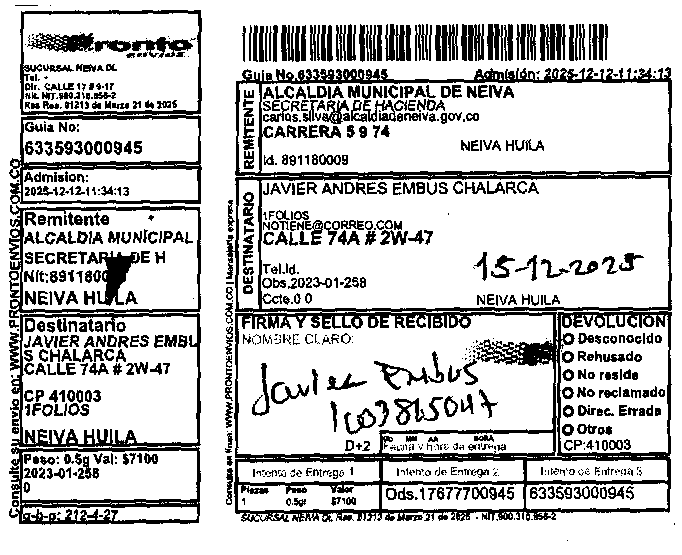 Pronto
envios
SUCURSAL NEIVA DL
Tel. -
Dir. CALLE 17 # 9-17
Nit. NIT.900.310.856-2
Res Res. 81213 de Marzo 21 de 2025
Guia No:
633593000945
Admision:
2025-12-12-11:34:13
Remitente
ALCALDIA MUNICIPAL
SECRETARIA DE H
Nit:8911800
NEIVA HUILA
Destinatario
JAVIER ANDRES EMBU
S CHALARCA
CALLE 74A # 2W-47
CP 410003
1FOLIOS
NEIVA HUILA
Peso: 0.5g Val: $7100
2023-01-258
0
a-b-p: 212-4-27
Consulte su envio en: WWW.PRONTOENVIOS.COM.CO
Guia No.633593000945 Admisión: 2025-12-12-11:34:13
REMITENTE
ALCALDIA MUNICIPAL DE NEIVA
SECRETARIA DE HACIENDA
carlos.silva@alcaldiadeneiva.gov.co
CARRERA 5 9 74
NEIVA HUILA
Id. 891180009
DESTINATARIO
JAVIER ANDRES EMBUS CHALARCA
1FOLIOS
NOTIENE@CORREO.COM
CALLE 74A # 2W-47
Tel.Id.
15-12-2025
Obs.2023-01-258
Ccte.0 0
NEIVA HUILA
FIRMA Y SELLO DE RECIBIDO
NOMBRE CLARO:
Javier Embus
1003865047
D+2
DD MM AA HORA
Fecha y hora de entrega
DEVOLUCION
Desconocido
Rehusado
No reside
No reclamado
Direc. Errada
Otros
CP:410003
Intento de Entrega 1
Intento de Entrega 2
Intento de Entrega 3
Piezas Peso Valor
1 0.5gr $7100
Ods.17677700945
633593000945
SUCURSAL NEIVA DL Res. 81213 de Marzo 21 de 2025 - NIT.900.310.856-2
Consulte en linea: WWW.PRONTOENVIOS.COM.CO | Mensajeria expresa